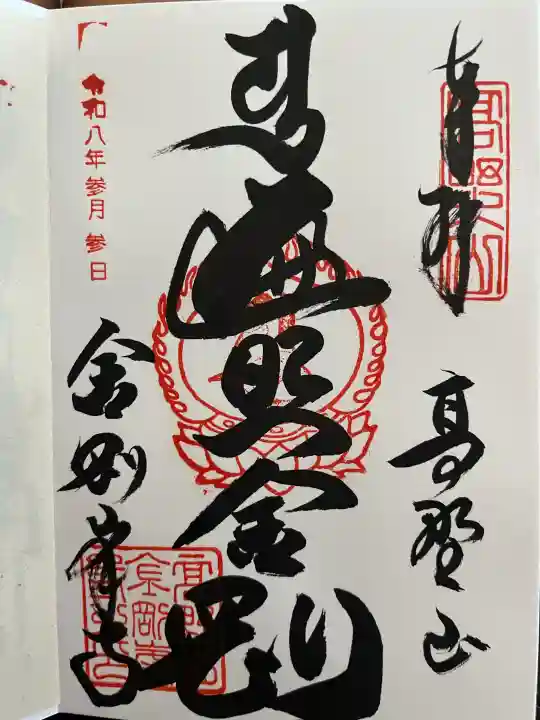 奉拝
高野山
高野山
遍照金剛
令和八年参月参日
金剛峯寺